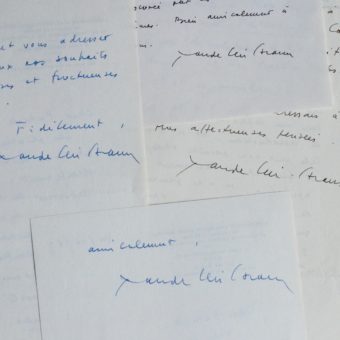 vous adresser
nos souhaits
et fructueuses
Fidèlement,
Claude Lévi-Strauss
par
Bien amicalement à
Claude Lévi-Strauss
à
affectueuses pensées
Claude Lévi-Strauss
amicalement,
Claude Lévi-Strauss